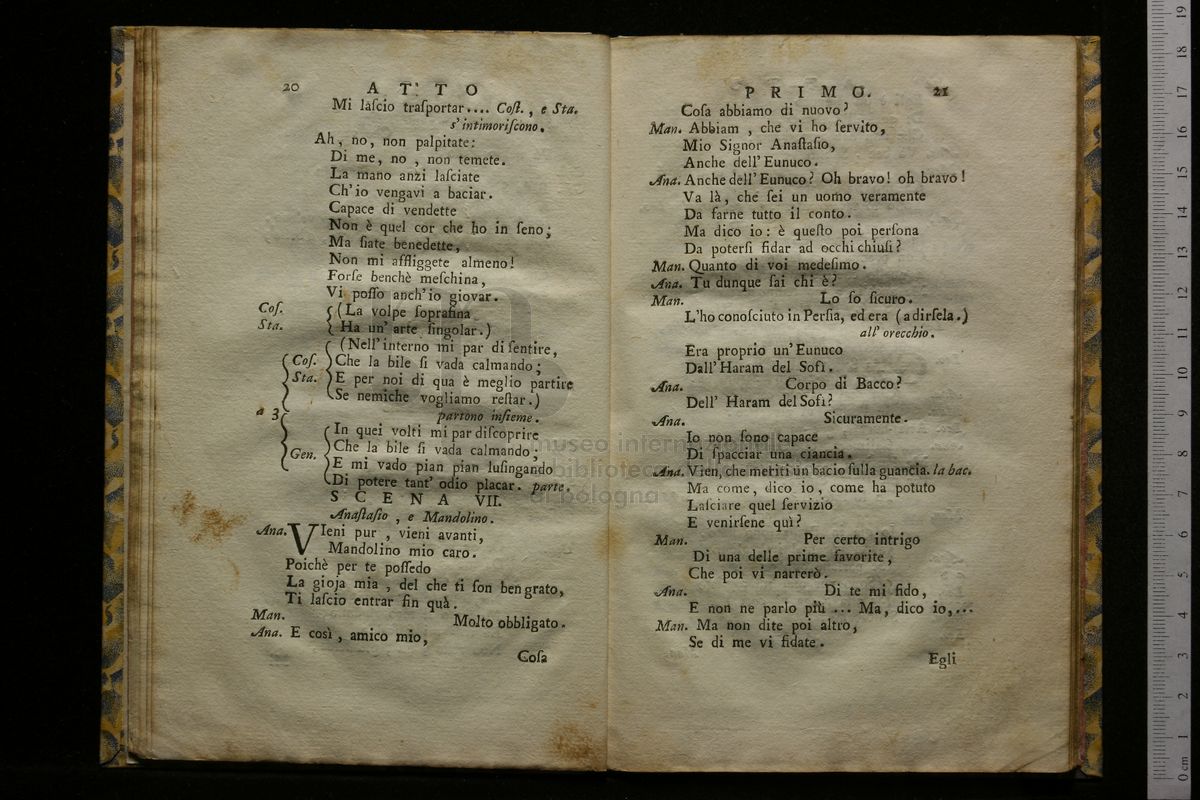 20 ATTO
Mi laſcio traſportar.... Coſt., e Sta.
s'intimoriſcono.
Ah, no, non palpitate:
Di me, no, non temete.
La mano anzi laſciate
Ch'io vengavi a baciar.
Capace di vendette
Non è quel cor che ho in ſeno;
Ma ſiate benedette,
Non mi affliggete almeno!
Forſe benchè meſchina,
Vi poſſo anch'io giovar.
Coſ. (La volpe ſopraſina
Sta. Ha un'arte ſingolar.)
(Nell'interno mi par di ſentire,
Coſ. Che la bile ſi vada calmando;
Sta. E per noi di qua è meglio partire
Se nemiche vogliamo reſtar.)
a 3 partono inſieme.
In quei volti mi par diſcoprire
Che la bile ſi vada calmando;
Gen. E mi vado pian pian luſingando
Di potere tant'odio placar. parte.
SCENA VII.
Anaſtaſio, e Mandolino.
Ana. VIeni pur, vieni avanti,
Mandolino mio caro.
Poichè per te poſſedo
La gioja mia, del che ti ſon ben grato,
Ti laſcio entrar ſin quà.
Man. Molto obbligato.
Ana. E così, amico mio,
Coſa
PRIMO. 21
Coſa abbiamo di nuovo?
Man. Abbiam, che vi ho ſervito,
Mio Signor Anaſtaſio,
Anche dell'Eunuco.
Ana. Anche dell'Eunuco? Oh bravo! oh bravo!
Va là, che ſei un uomo veramente
Da farne tutto il conto.
Ma dico io: è queſto poi perſona
Da poterſi fidar ad occhi chiuſi?
Man. Quanto di voi medeſimo.
Ana. Tu dunque ſai chi è?
Man. Lo ſo ſicuro.
L'ho conoſciuto in Perſia, ed era (a dirſela.)
all'orecchio.
Era proprio un'Eunuco
Dall'Haram del Sofì.
Ana. Corpo di Bacco?
Dell'Haram del Sofì?
Ana. Sicuramente.
Io non ſono capace
Di ſpacciar una ciancia.
Ana. Vien, che meriti un bacio ſulla guancia. la bac.
Ma come, dico io, come ha potuto
Laſciare quel ſervizio
E venirſene quì?
Man. Per certo intrigo
Di una delle prime favorite,
Che poi vi narrerò.
Ana. Di te mi fido,
E non ne parlo più ... Ma, dico io,...
Man. Ma non dite poi altro,
Se di me vi fidate.
Egli
museo internazionale
biblioteca
di bologna
0 cm 1 2 3 4 5 6 7 8 9 10 11 12 13 14 15 16 17 18 19